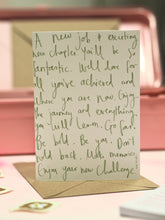 A new job & exciting
new chapter. You'll be so
fantastic. Well done for
all you've achieved and
where you are now. Enjoy
the journey and everything
you will learn. Go far.
Be bold. Be you. Don't
hold back. Make memories
Enjoy your new challenge.